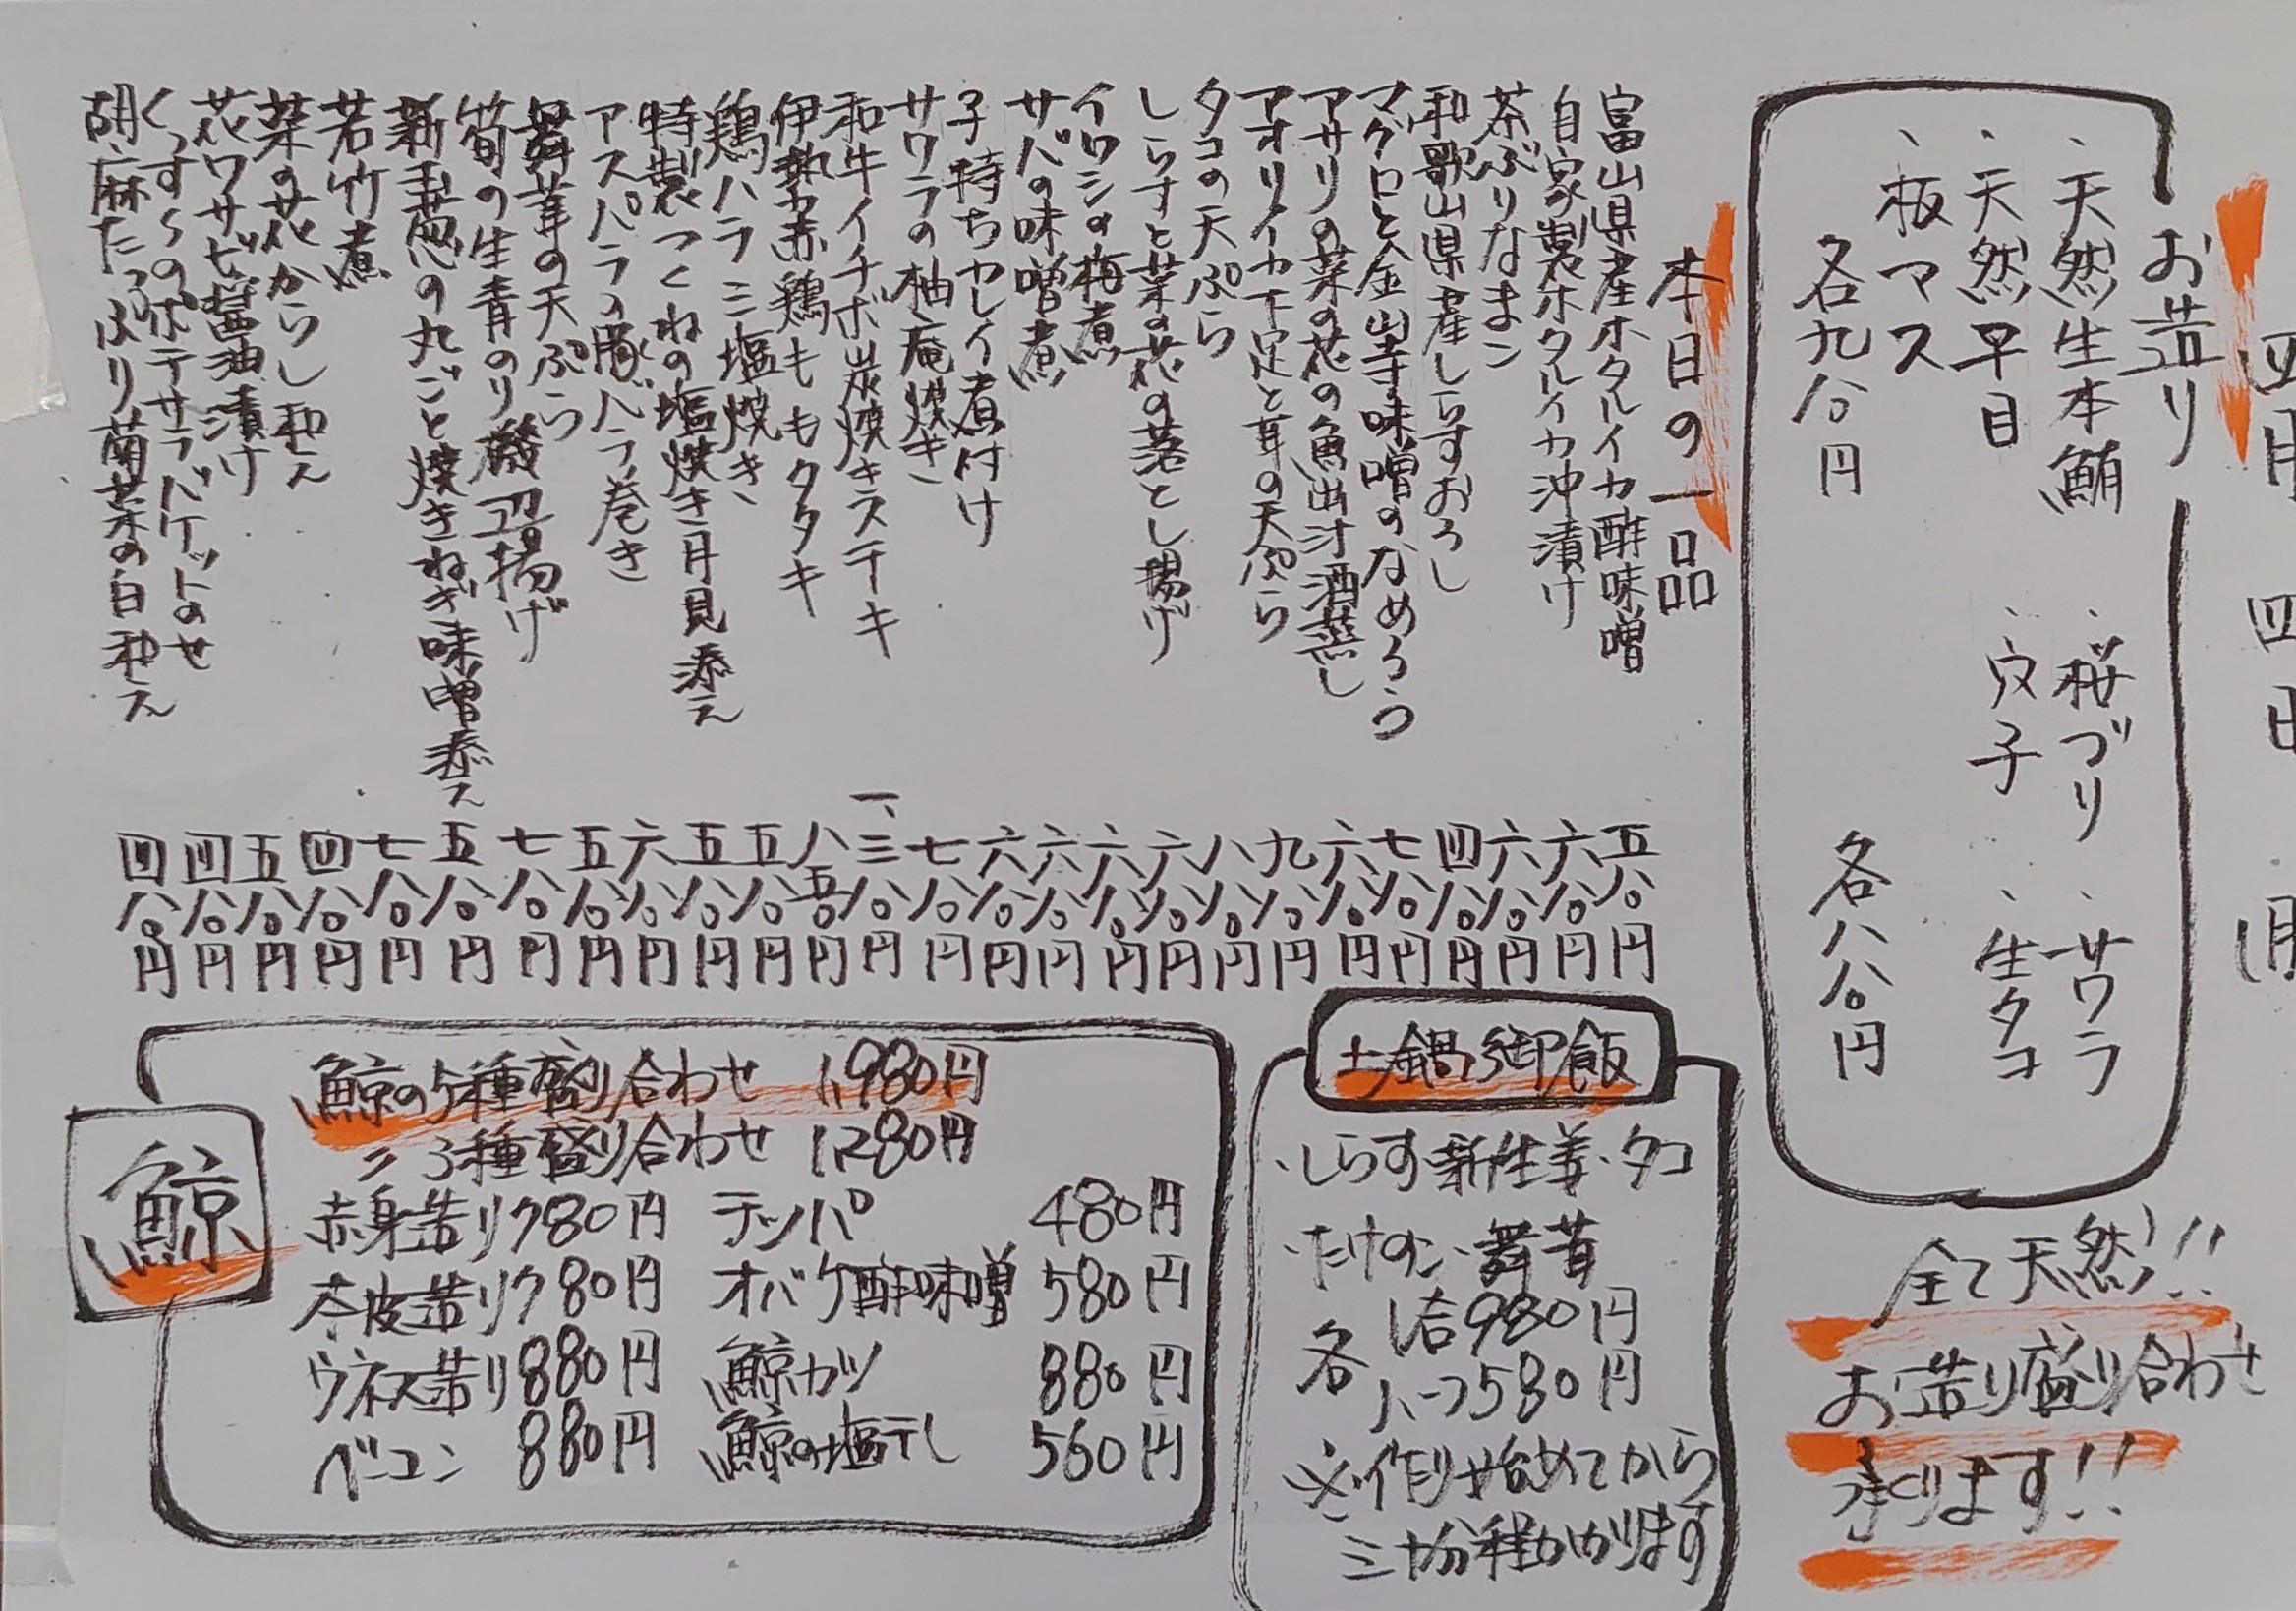 四月四日(月)
お造り
、天然生本鮪 、桜ブリ 、サワラ
、天然早目 、穴子 、生タコ
、板マス
各九八〇円 各八八〇円
全て天然!!
お造り盛り合わせ
承ります!!
本日の一品
富山県産ホタルイカ酢味噌 五八〇円
自家製ホタルイカ沖漬け 六八〇円
茶ぶりなまこ 六八〇円
和歌山県産しらすおろし 四八〇円
マグロと金山寺味噌のなめろう 七八〇円
アサリの菜の花の魚出汁酒蒸し 六八〇円
アオリイカ下足と茸の天ぷら 九八〇円
タコの天ぷら 八八〇円
しらすと菜の花の落とし揚げ 六八〇円
イワシの梅煮 六八〇円
サバの味噌煮 六八〇円
子持ちカレイ煮付け 六八〇円
サワラの柚庵焼き 七八〇円
和牛イチボ炭焼きステーキ 一、三八〇円
伊勢赤鶏ももタタキ 八五〇円
鶏ハラミ塩焼き 五八〇円
特製つくねの塩焼き月見添え 五八〇円
アスパラの豚バラ巻き 六八〇円
舞茸の天ぷら 五八〇円
筍の生青のり磯辺揚げ 七八〇円
新玉葱の丸ごと焼きねぎ味噌添え 五八〇円
若竹煮 七八〇円
菜の花からし和え 四八〇円
花ワサビ醤油漬け 五八〇円
くっすぅのポテサラバケットのせ 四八〇円
胡麻たっぷり菊菜の白和え 四八〇円
土鍋御飯
・しらす・新生姜・タコ
・たけのこ・舞茸
各 1合980円
ハーフ580円
※作り始めてから
三十分程かかります
鯨
鯨の5種盛り合わせ 1,980円
〃 3種盛り合わせ 1,280円
赤身造り 780円 テッパ 480円
本皮造り 780円 オバケ酢味噌 580円
ウネス造り 880円 鯨カツ 880円
ベーコン 880円 鯨の塩干し 560円